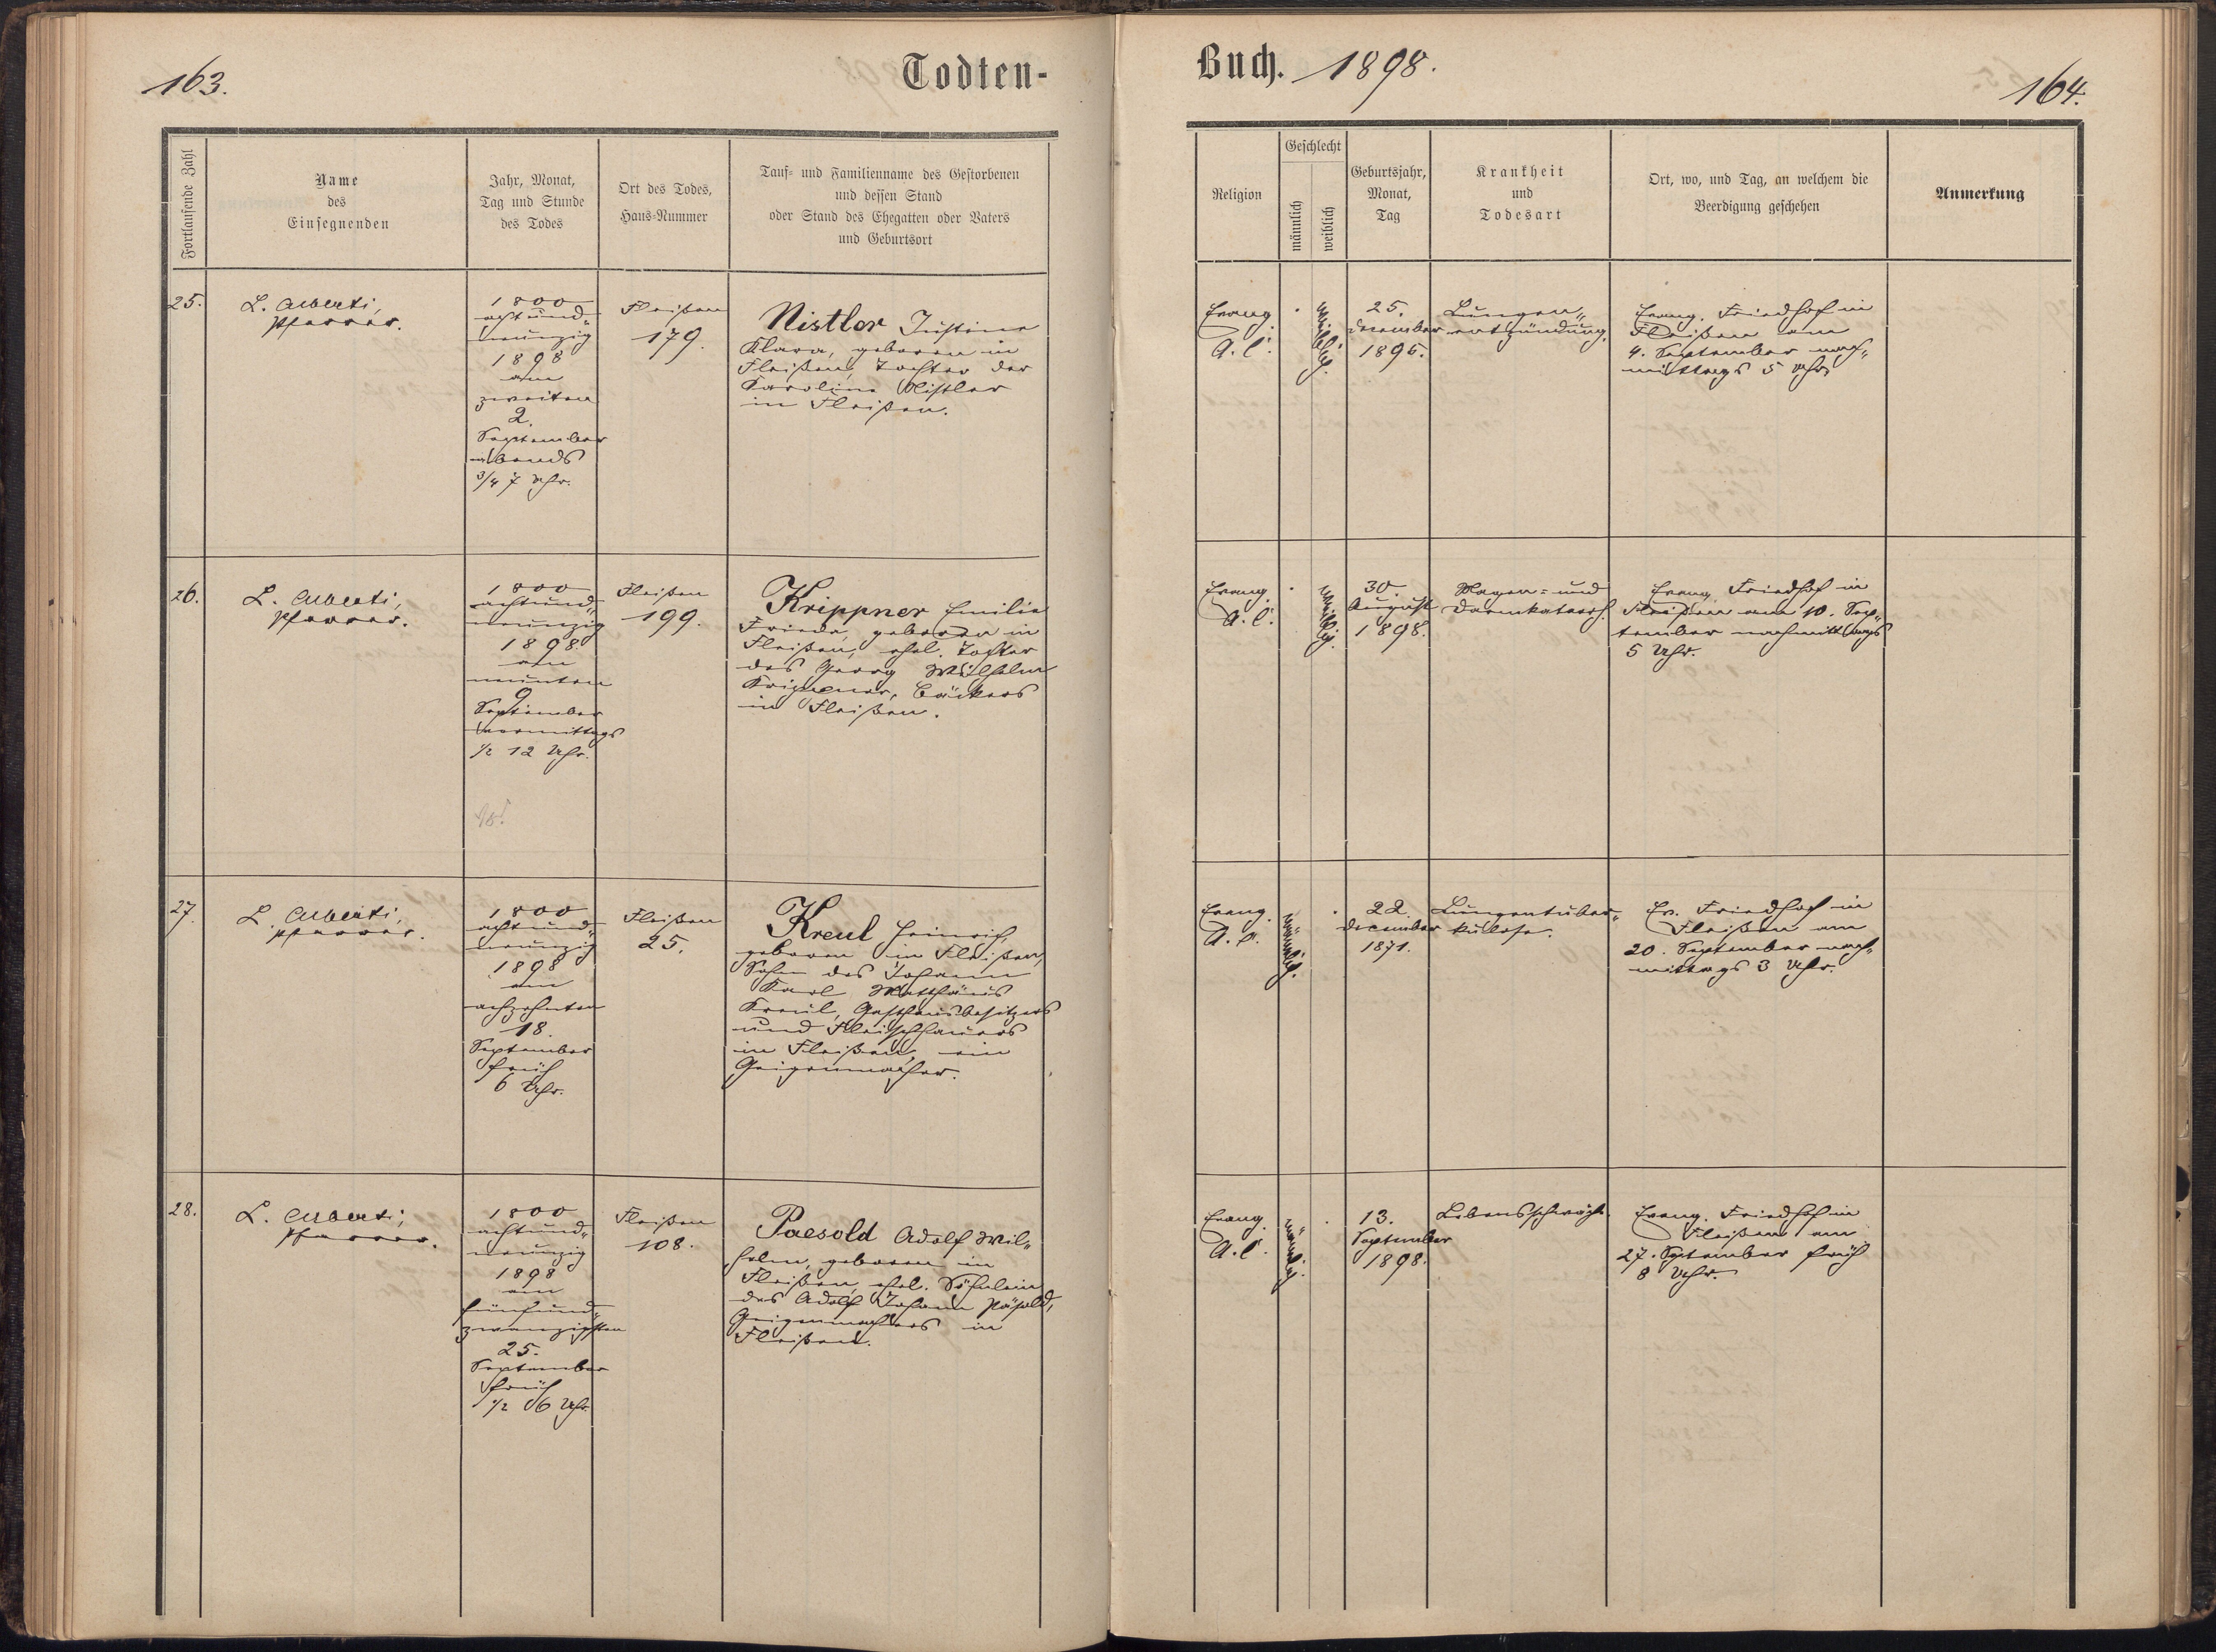 163.
Todten-
Fortlaufende Zahl
Name
des
Einsegnenden
Jahr, Monat,
Tag und Stunde
des Todes
Ort des Todes,
Haus-Nummer
Tauf- und Familienname des Gestorbenen
und dessen Stand
oder Stand des Ehegatten oder Vaters
und Geburtsort
25.
L. Alberti,
Pfarrer.
1800
achtund„
neunzig
1898
am
zweiten
2.
September
abends
3/4 7 Uhr.
Fleißen
179.
Nistler Justine
Klara, geboren in
Fleißen, Tochter der
Karoline Nistler
in Fleißen.
26.
L. Alberti,
Pfarrer.
1800
achtund„
neunzig
1898
am
neunten
9
September
vormittags
1/2 12 Uhr.
Fleißen
199.
Krippner Emilie
Frieda, geboren in
Fleißen, ehel. Tochter
des Georg Wilhelm
Krippner, Bäckers
in Fleißen.
27.
L. Alberti,
Pfarrer.
1800
achtund„
neunzig
1898
am
achzehnten
18.
September
früh
6 Uhr.
Fleißen
25.
Kreul Heinrich,
geboren in Fleißen,
Sohn des Johann
Karl Matthäus
Kreul, Gasthausbesitzers
und Fleischhauers
in Fleißen, ein
Geigenmacher.
28.
L. Alberti,
Pfarrer.
1800
achtund„
neunzig
1898
am
fünfund„
zwanzigsten
25.
September
früh
1/2 6 Uhr.
Fleißen
108.
Paesold Adolf Wil„
helm, geboren in
Fleißen, ehel. Söhnlein
des Adolf Johann Päsold,
Geigenmachers in
Fleißen.
Buch. 1898.
164.
Religion
Geschlecht
männlich
weiblich
Geburtsjahr,
Monat,
Tag
Krankheit
und
Todesart
Ort, wo, und Tag, an welchem die
Beerdigung geschehen
Anmerkung
Evang.
A. C.
weiblich.
25.
December
1895.
Lungen„
entzündung.
Evang. Friedhof in
Fleißen am
4. September nach„
mittags 5 Uhr.
Evang.
A. C.
weiblich.
30.
August
1898.
Magen- und
Darmkatarrh.
Evang. Friedhof in
Fleißen am 10. Sep„
tember nachmittags
5 Uhr.
Evang.
A. C.
männlich.
22.
December
1871.
Lungentuber„
kulose.
Ev. Friedhof in
Fleißen am
20. September nach„
mittags 3 Uhr.
Evang.
A. C.
männlich.
13.
September
1898.
Lebensschwäche.
Evang. Friedhof in
Fleißen am
27. September früh
8 Uhr.